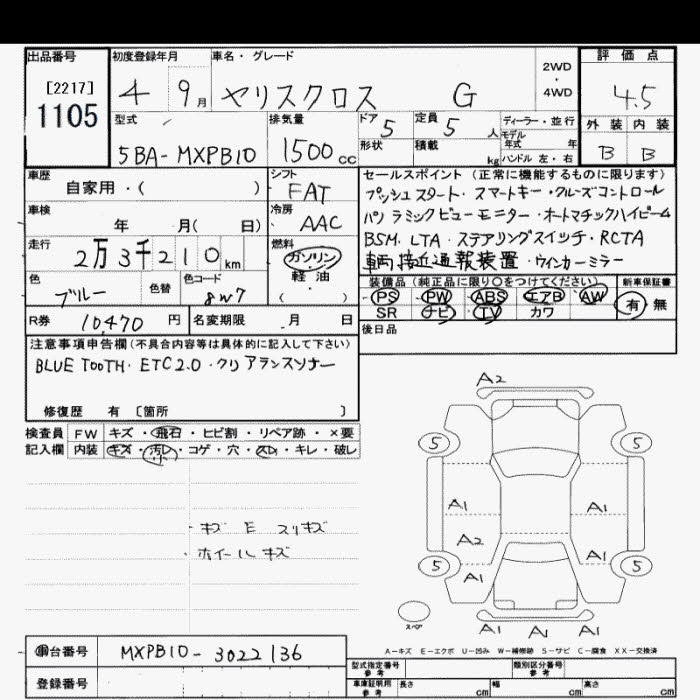 出品番号
[2217]
1105
初度登録年月
4 9月
車名・グレード
ヤリスクロス G
2WD
・
4WD
評価点
4.5
外装 内装
B B
型式
5BA-MXPB10
排気量
1500 cc
ドア 5
定員 5 人
ディーラー・並行
モデル
年式 年
形状
積載 kg
ハンドル 左・右
車歴
自家用・( )
シフト
FAT
車検
年 月( 日)
冷房
AAC
走行
2万3千210km
燃料
ガソリン・
軽油・
( )
色
ブルー
色替
色コード
8W7
R券 10470 円
名変期限 月 日
セールスポイント(正常に機能するものに限ります)
プッシュスタート・スマートキー・クルーズコントロール
パノラミックビューモニター・オートマチックハイビーム
BSM・LTA・ステアリングスイッチ・RCTA
車両接近通報装置・ウインカーミラー
装備品(純正品に限り○をつけてください)
PS PW ABS エアB AW
SR ナビ TV カワ
新車保証書
有・無
後日品
注意事項申告欄(不具合内容等は具体的に記入して下さい)
BLUE TOOTH・ETC2.0・クリアランスソナー
修復歴 有 〔箇所 〕
検査員
記入欄
FW キズ・飛石・ヒビ割・リペア跡・×要
内装 キズ・汚レ・コゲ・穴・スレ・キレ・破レ
小
・キズ E スリキズ
・ホイールキズ
A2
5 5
A1 A1
A2
A1 A1
5 5
A1 A1 A1
スペア
A-キズ E-エクボ U-凹み W-補修跡 S-サビ C-腐食 XX-交換済
車台番号 MXPB10-3022136
登録番号
型式指定番号
参考
類別区分番号
参考
車庫証明用
参考
長さ cm 幅 cm 高さ cm